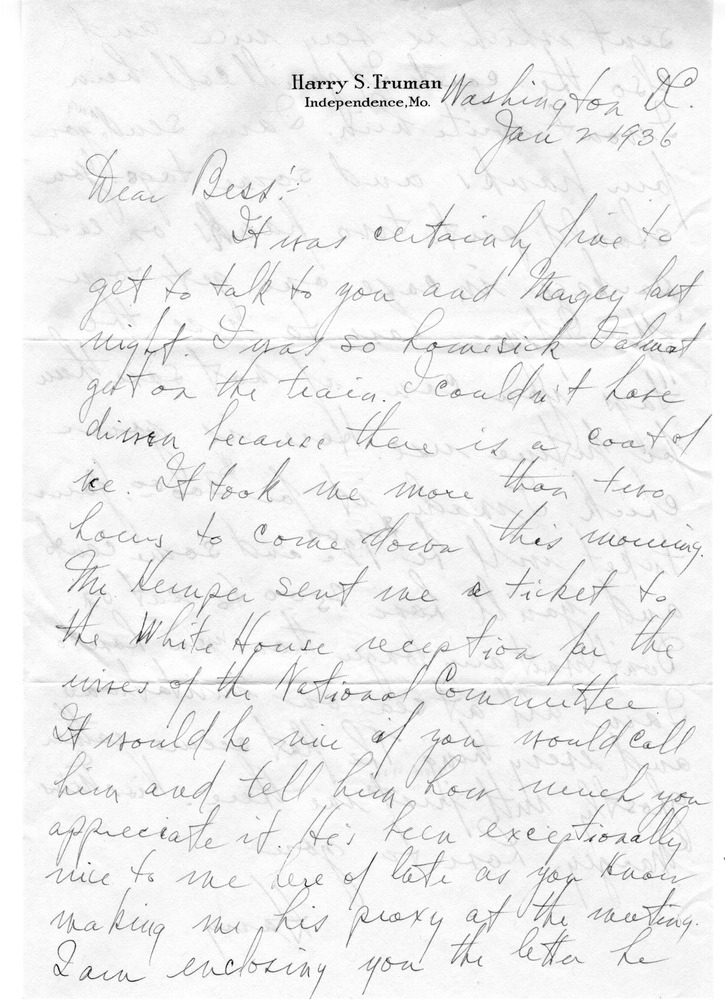 Harry S. Truman
Independence, Mo.
Washington D.C.
Jan 2 1936
Dear Bess:
It was certainly fine to
get to talk to you and Margey last
night. I was so homesick I almost
got on the train. I couldn't have
driven because there is a coat of
ice. It took me more than two
hours to come down this morning.
Mr. Kemper sent me a ticket to
the White House reception for the
wives of the National Committee.
It would be nice if you would call
him and tell him how much you
appreciate it. He's been exceptionally
nice to me here of late as you know
making me his proxy at the meeting.
I am enclosing you the letter he